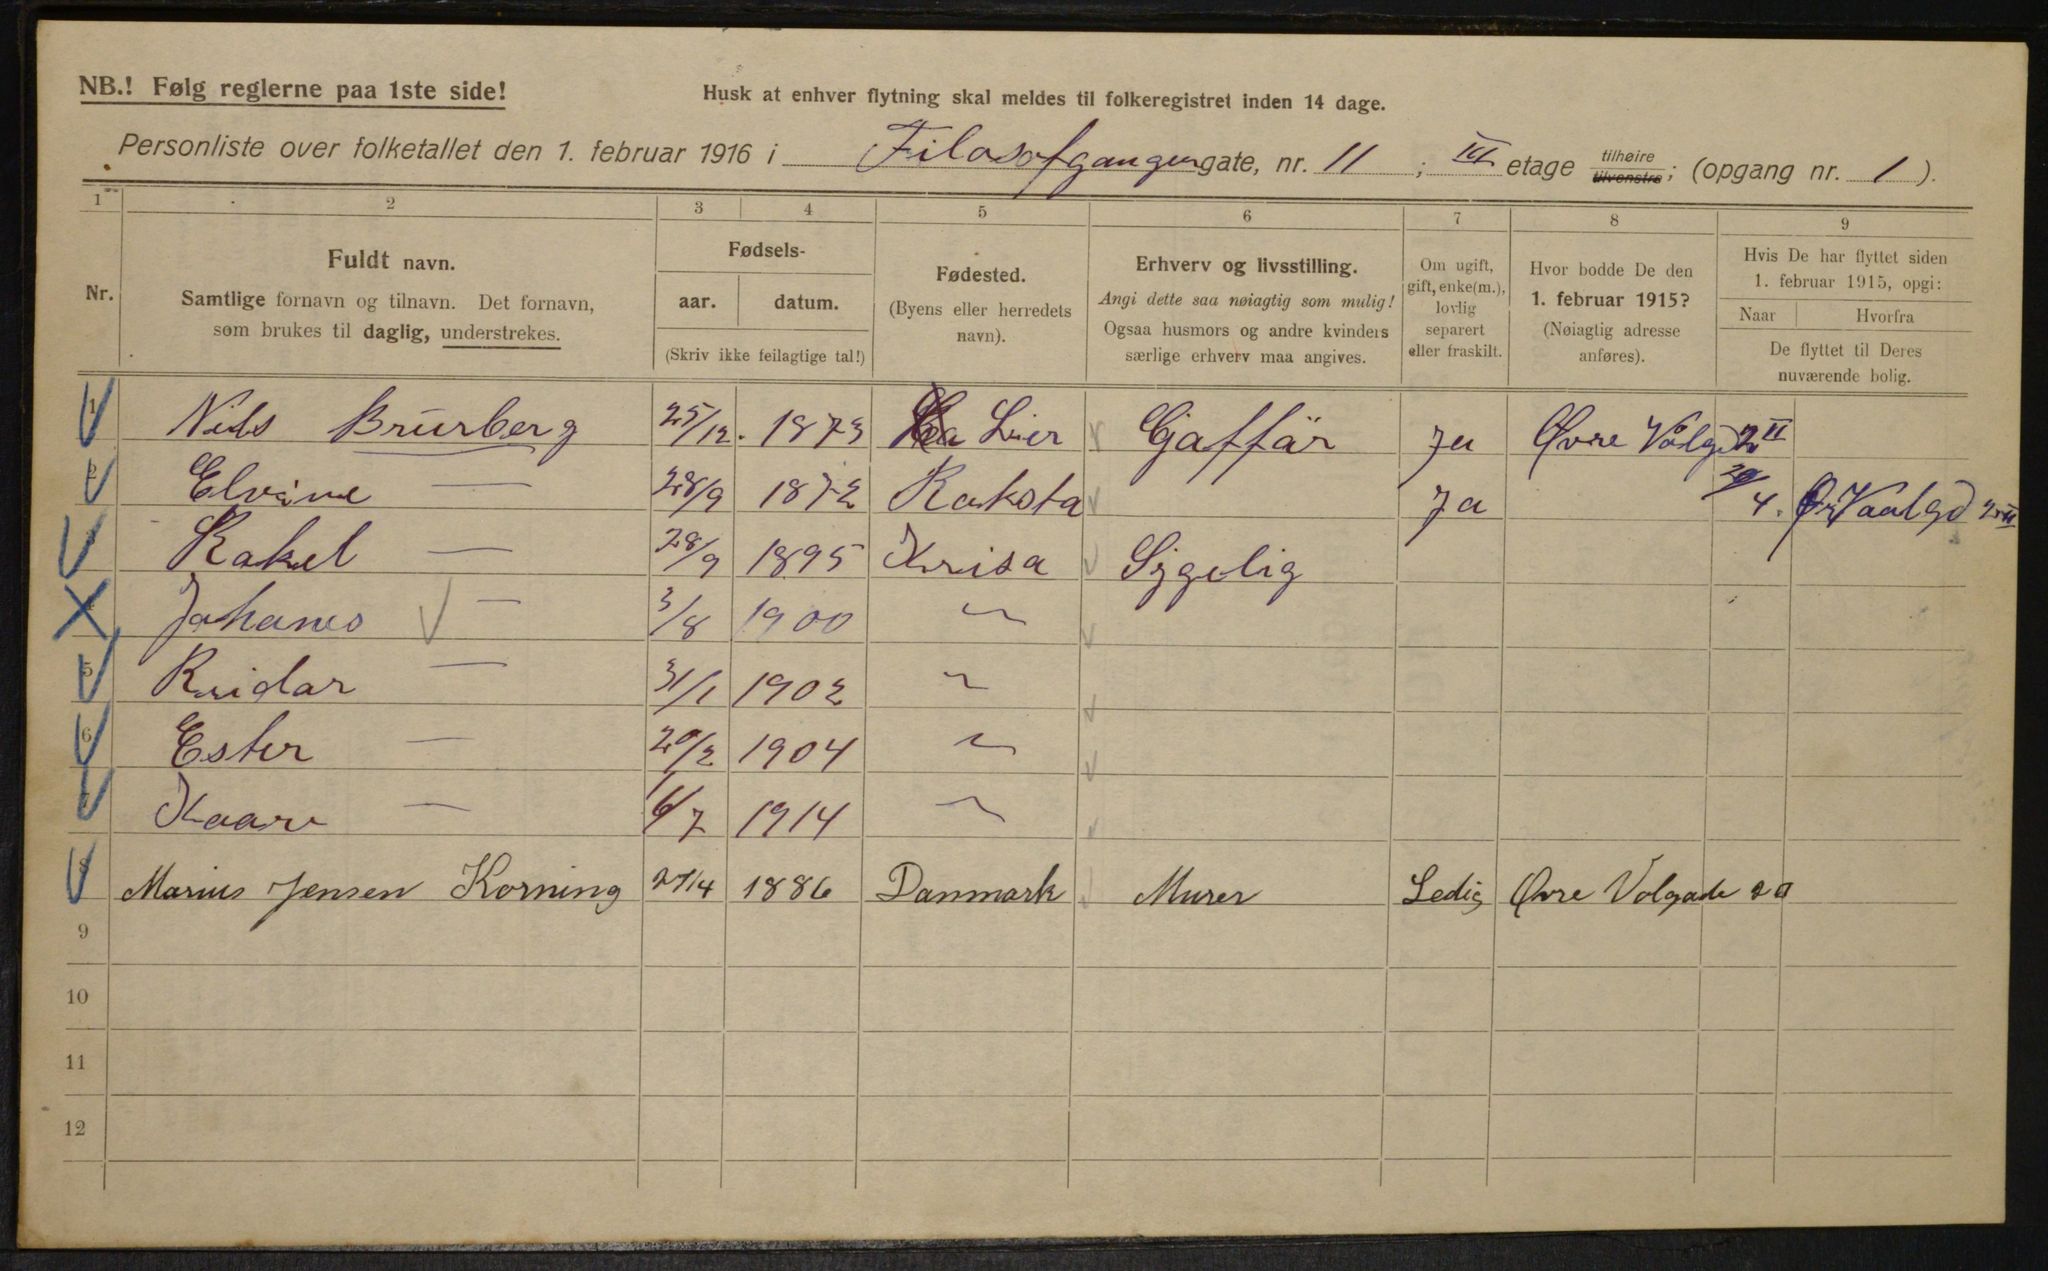 NB.! Følg reglerne paa 1ste side!
Husk at enhver flytning skal meldes til folkeregistret inden 14 dage.
Personliste over folketallet den 1. februar 1916 i Filosofgangen gate, nr. 11 ; III etage tilhøire tilvenstre; (opgang nr. 1).
1 2 3 4 5 6 7 8 9
Nr.
Fuldt navn.
Samtlige fornavn og tilnavn. Det fornavn,
som brukes til daglig, understrekes.
Fødsels-
aar. datum.
(Skriv ikke feilagtige tal!)
Fødested.
(Byens eller herredets
navn).
Erhverv og livsstilling.
Angi dette saa nøiagtig som mulig!
Ogsaa husmors og andre kvinders
særlige erhverv maa angives.
Om ugift,
gift, enke(m.),
lovlig
separert
eller fraskilt.
Hvor bodde De den
1. februar 1915?
(Nøiagtig adresse
anføres).
Hvis De har flyttet siden
1. februar 1915, opgi:
Naar Hvorfra
De flyttet til Deres
nuværende bolig.
1 Nils Brurberg 25/12. 1873 Lier Gjaffär Ja Øvre Volgd 2 II
2 Elvine — 28/9 1872 Raksta Ja 4. Ø. Vaalgd 2 II
Rakel — 28/9 1895 Krisa Sygelig
Johanes — 3/8 1900 "
5 Reidar — 31/1 1902 "
6 Ester — 20/2 1904 "
7 Kaare — 1914 "
8 Marius Jensen Korning 27/4 1886 Danmark Murer Ledig Øvre Volgade
9
10
11
12